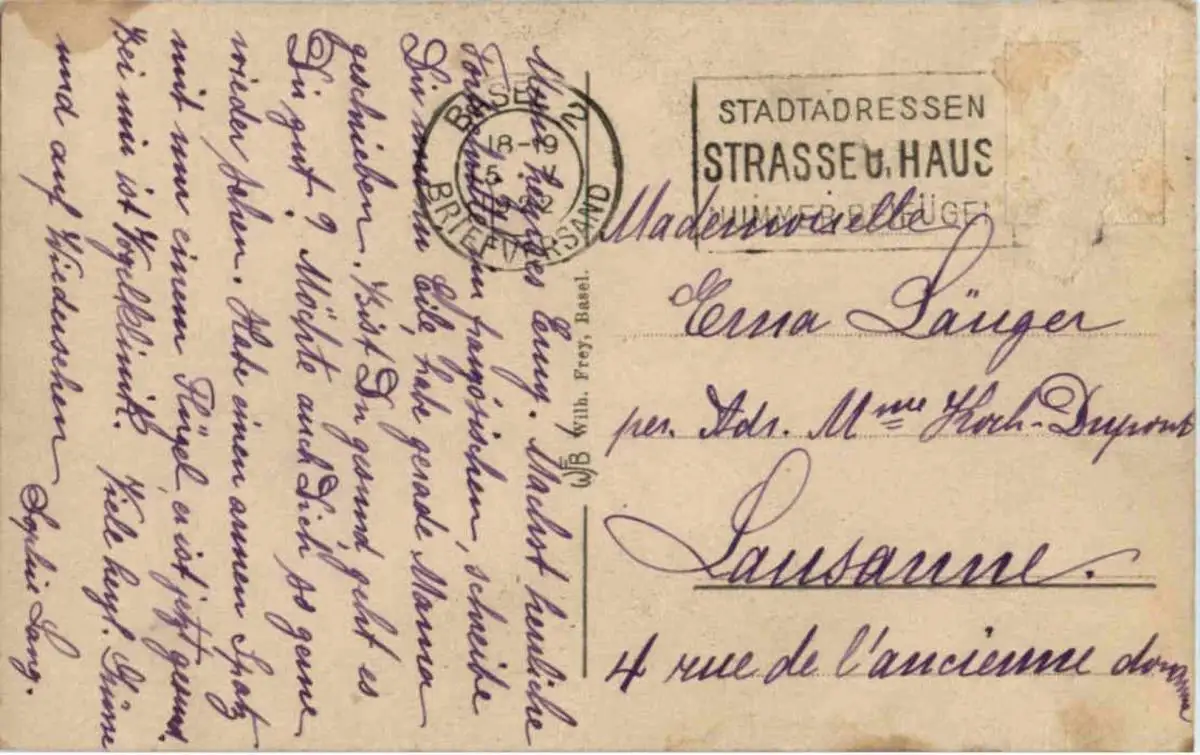 Mein herziges Erny. Machst herrliche
im französischen, schreibe
Dir nur in Eile, habe gerade Mama
geschrieben. Bist Du gesund geht es
Dir gut? Möchte auch Dich so gerne
wieder sehen. Habe einen armen Spatz
mit nur einem Flügel, er ist jetzt gesund.
Bei mir ist Vogelklinik. Viele hrzl. Grüsse
und auf Wiedersehen
Sophie Lang.
BASEL 2
18-19
BRIEFVERSAND
W.F.B. Wilh. Frey, Basel.
STADTADRESSEN
STRASSE U. HAUS
NUMMER BEFÜGEN
Mademoiselle
Erna Länger
per. Adr. Mme Koch-Dupont
Lausanne.
4 rue de l'ancienne douane